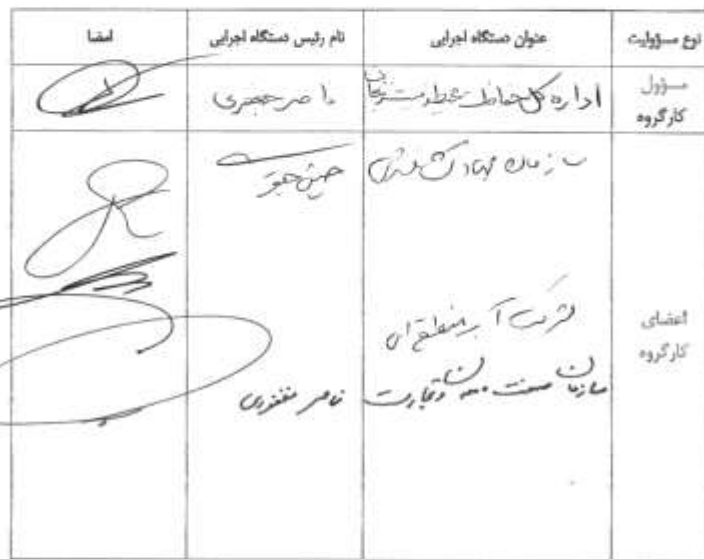 نوع مسؤولیت عنوان دستگاه اجرایی نام رئیس دستگاه اجرایی امضا
مسؤول کارگروه اداره کل حفاظت محیط زیست زنجان ناصر جعفری
سازمان جهاد کشاورزی
اعضای کارگروه
شرکت آب منطقه ای
سازمان صنعت معدن و تجارت ناصر فغفوری